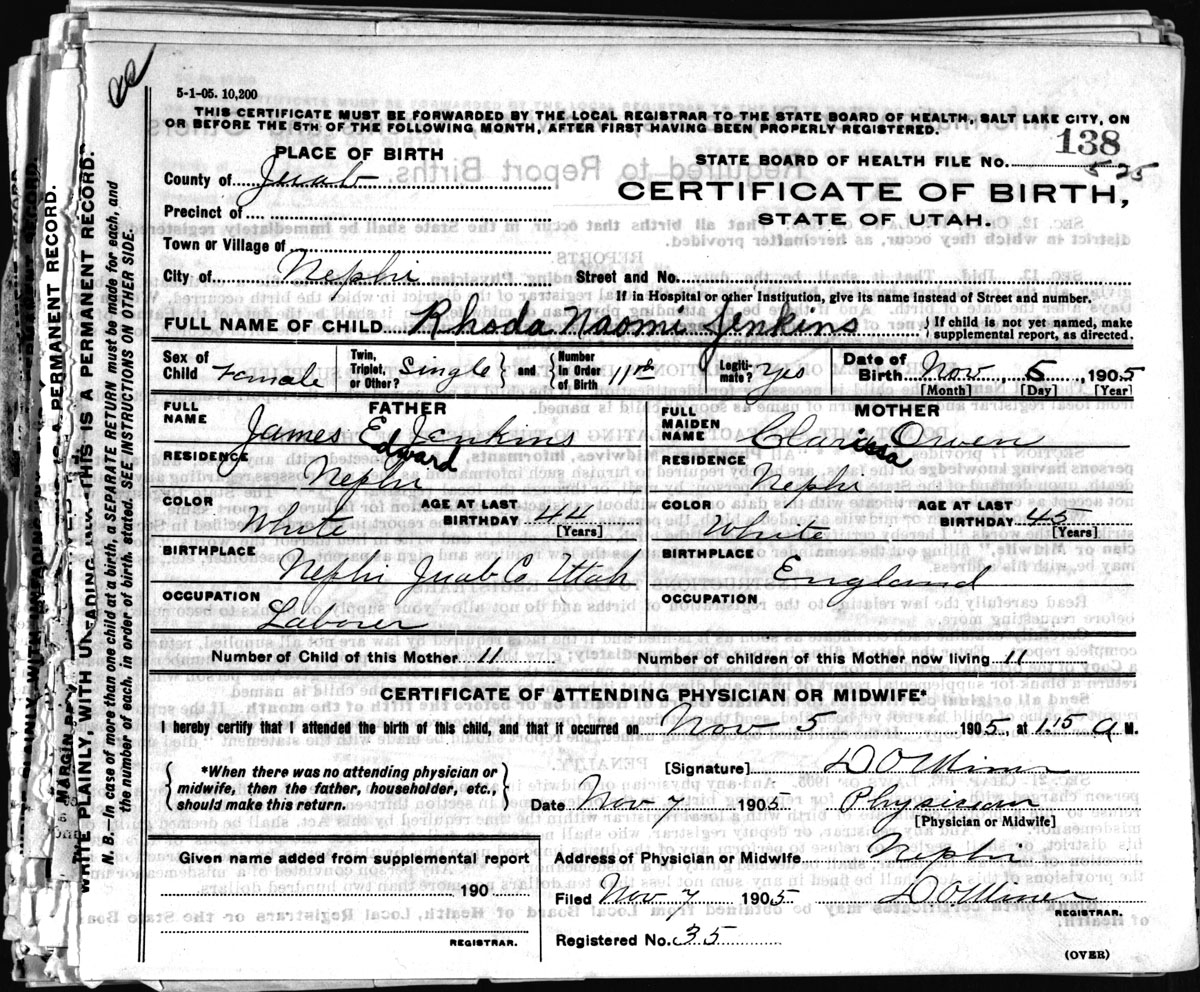 5-1-05. 10,200
THIS CERTIFICATE MUST BE FORWARDED BY THE LOCAL REGISTRAR TO THE STATE BOARD OF HEALTH, SALT LAKE CITY, ON
OR BEFORE THE 5TH OF THE FOLLOWING MONTH, AFTER FIRST HAVING BEEN PROPERLY REGISTERED.
138
PLACE OF BIRTH
STATE BOARD OF HEALTH FILE NO. 525
County of Juab
CERTIFICATE OF BIRTH,
Precinct of
STATE OF UTAH.
Town or Village of
City of Nephi Street and No.
If in Hospital or other Institution, give its name instead of Street and number.
FULL NAME OF CHILD Rhoda Naomi Jenkins { If child is not yet named, make supplemental report, as directed.
Sex of Child Female Twin, Triplet, or Other? Single } and { Number in Order of Birth 11th Legitimate? Yes Date of Birth Nov, 5, 1905
[Month] [Day] [Year]
FATHER MOTHER
FULL NAME James Edward Jenkins FULL MAIDEN NAME Clarissa Owen
RESIDENCE Nephi RESIDENCE Nephi
COLOR White AGE AT LAST BIRTHDAY 44 [Years] COLOR White AGE AT LAST BIRTHDAY 45 [Years]
BIRTHPLACE Nephi Juab Co Utah BIRTHPLACE England
OCCUPATION Laborer OCCUPATION
Number of Child of this Mother 11 Number of children of this Mother now living 11
CERTIFICATE OF ATTENDING PHYSICIAN OR MIDWIFE*
I hereby certify that I attended the birth of this child, and that it occurred on Nov 5 1905, at 1.15 A M.
{ *When there was no attending physician or midwife, then the father, householder, etc., should make this return. }
[Signature] D O Miner
Date Nov 7 1905 Physician
[Physician or Midwife]
Given name added from supplemental report
190
REGISTRAR.
Address of Physician or Midwife Nephi
Filed Nov 7 1905 D O Miner
REGISTRAR.
Registered No. 35
(OVER)
WRITE PLAINLY, WITH UNFADING INK—THIS IS A PERMANENT RECORD.
N. B.—In case of more than one child at a birth, a SEPARATE RETURN must be made for each, and
the number of each, in order of birth, stated. SEE INSTRUCTIONS ON OTHER SIDE.